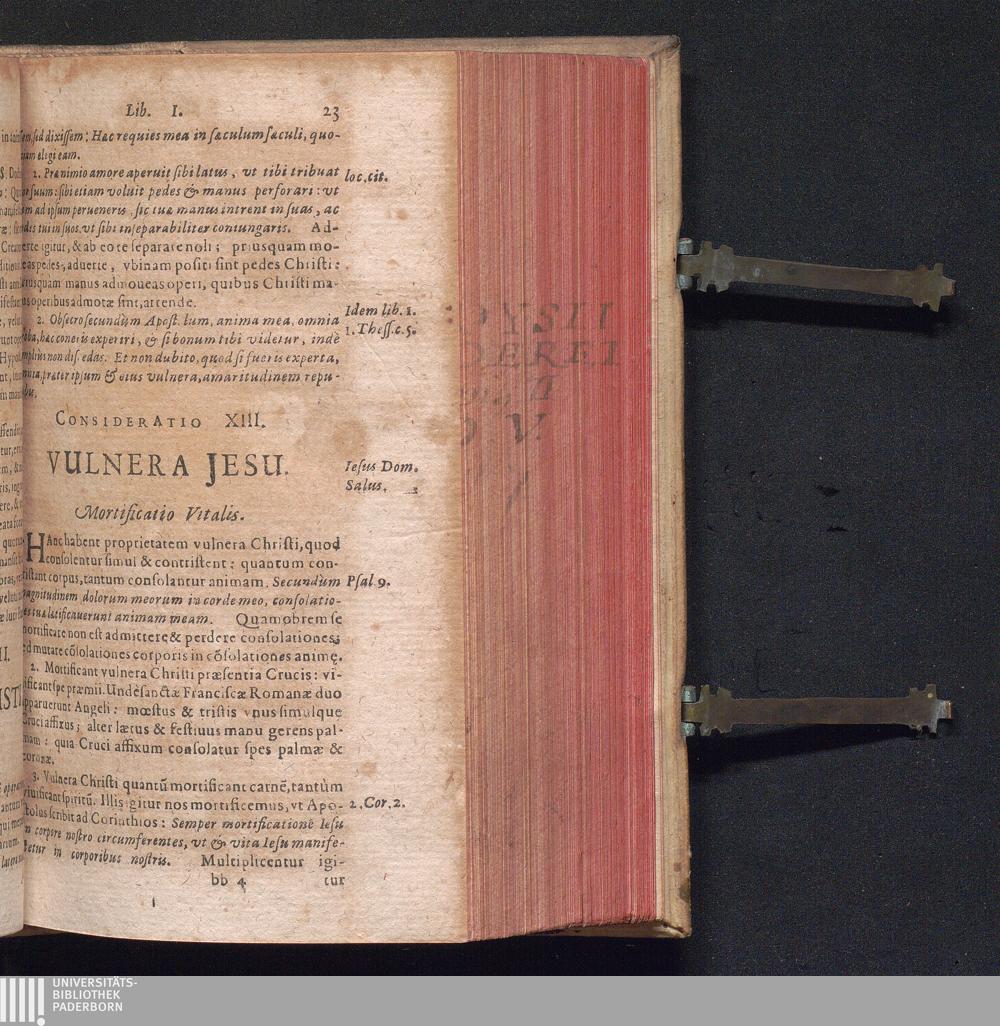 Lib. I. 23
sed dixissem; Hæc requies mea in sæculum sæculi, quo-
eligi eam.
1. Præ nimio amore aperuit sibi latus, vt tibi tribuat loc. cit.
suum: sibi etiam voluit pedes & manus perforari: vt
ad ipsum perueneris, sic tuæ manus intrent in suas, ac
tui in suos, vt sibi inseparabiliter coniungaris. Ad-
igitur, & ab eo te separare noli; priusquam mo-
pedes, aduerte, vbinam positi sint pedes Christi:
manus admoueas operi, quibus Christi ma-
operibus admotæ sint, attende.
2. Obsecro secundùm Apost. lum, anima mea, omnia Idem lib. 1.
hæc coneris experiri, & si bonum tibi videtur, indè 1. Thess. c. 5.
non discedas. Et non dubito, quod si fueris experta,
præter ipsum & eius vulnera, amaritudinem repu-
CONSIDERATIO XIII.
VULNERA JESU. Iesus Dom.
Salus.
Mortificatio Vitalis.
HAnc habent proprietatem vulnera Christi, quod
consolentur simul & contristent: quantum con-
tristant corpus, tantum consolantur animam. Secundùm Psal 9.
magnitudinem dolorum meorum in corde meo, consolatio-
tuæ lætificauerunt animam meam. Quamobrem se
mortificare non est admittere & perdere consolationes;
sed mutare cōsolationes corporis in cōsolationes animę.
2. Mortificant vulnera Christi præsentia Crucis: vi-
uificant spe præmii. Undè sanctæ Franciscæ Romanæ duo
apparuerunt Angeli: mœstus & tristis vnus simulque
Cruci affixus; alter lætus & festiuus manu gerens pal-
mam: quia Cruci affixum consolatur spes palmæ &
coronæ.
3. Vulnera Christi quantū mortificant carnē, tantùm
viuificant spiritū. Illis igitur nos mortificemus, vt Apo- 2. Cor. 2.
stolus scribit ad Corinthios: Semper mortificationē Iesu
in corpore nostro circumferentes, vt & vita Iesu manife-
stetur in corporibus nostris. Multiplicentur igi-
bb 4 tur
UNIVERSITÄTS-
BIBLIOTHEK
PADERBORN